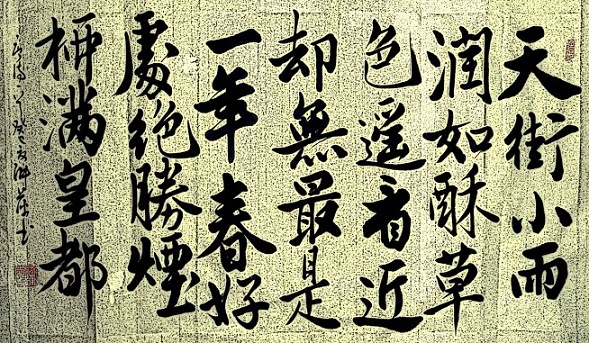 天街小雨
润如酥草
色遥看近
却無最是
一年春好
處绝勝煙
柳满皇都